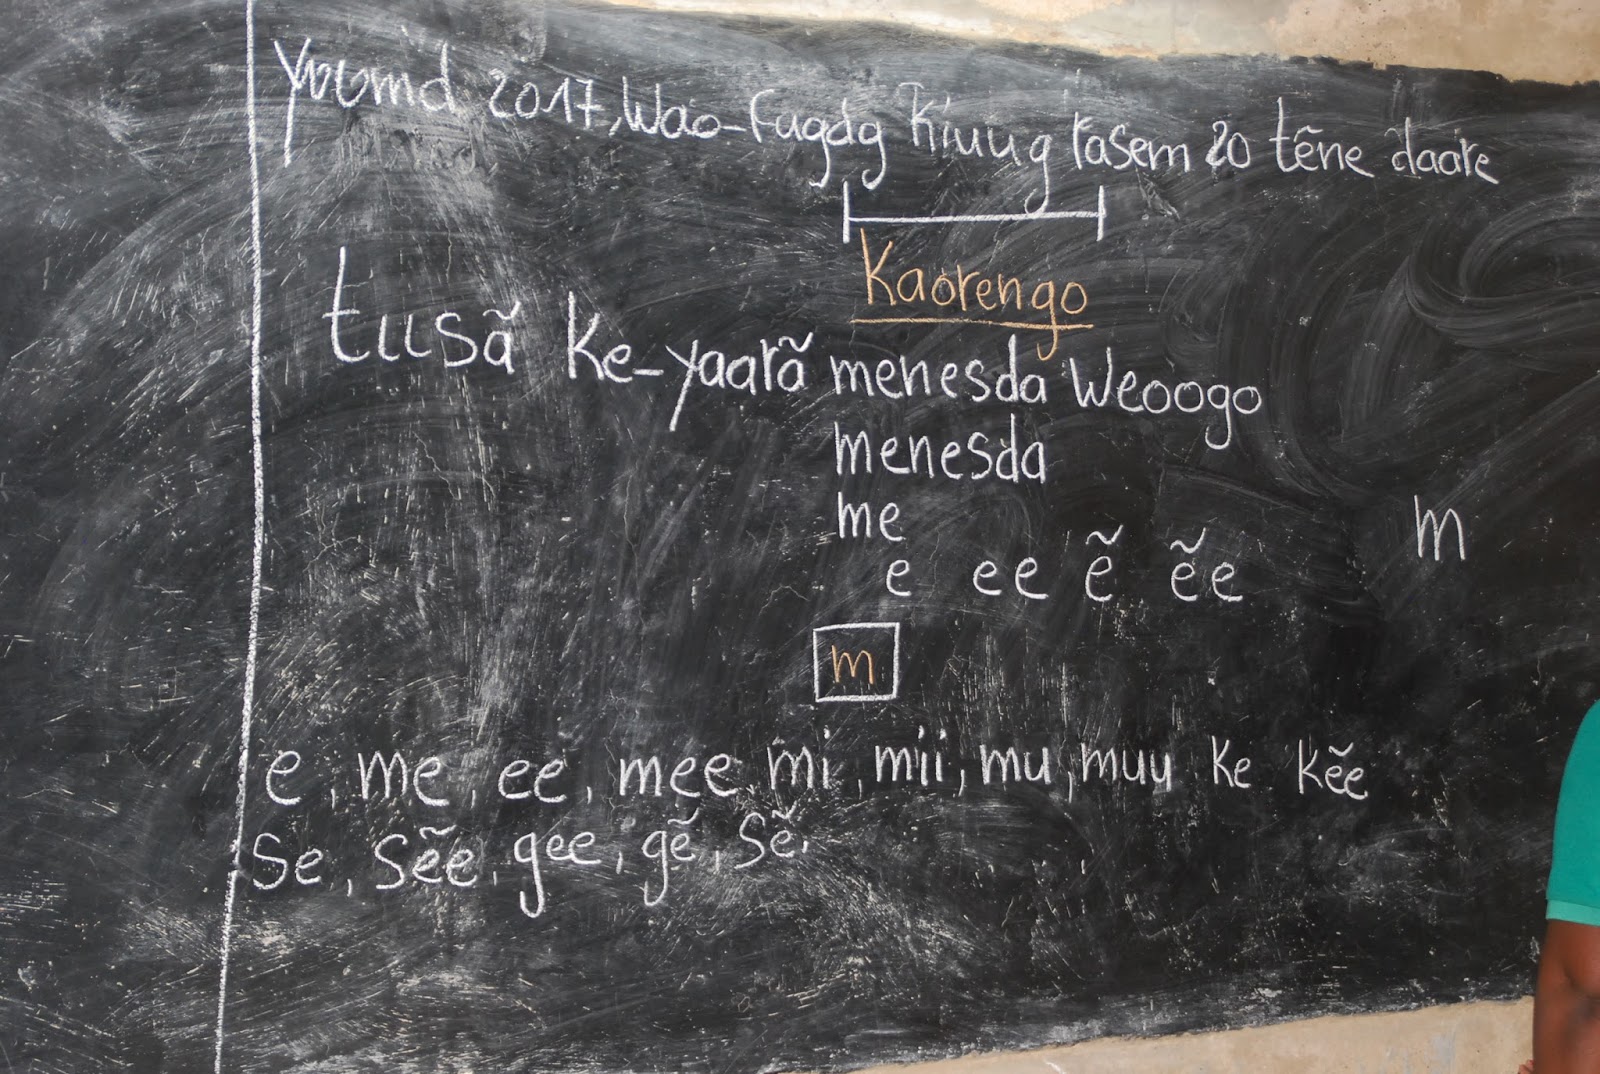 Yʋʋmd 2017, Wao-fugdg kiuug rasem 20 tẽne daare
Kaorengo
tɩɩsã ke-yaarã menesda weoogo
menesda
me
m
e ee ẽ ẽe
m
e, me, ee, mee, mi, mii, mu, muu ke kẽe
se, sẽe, gee, gẽ, sẽ.